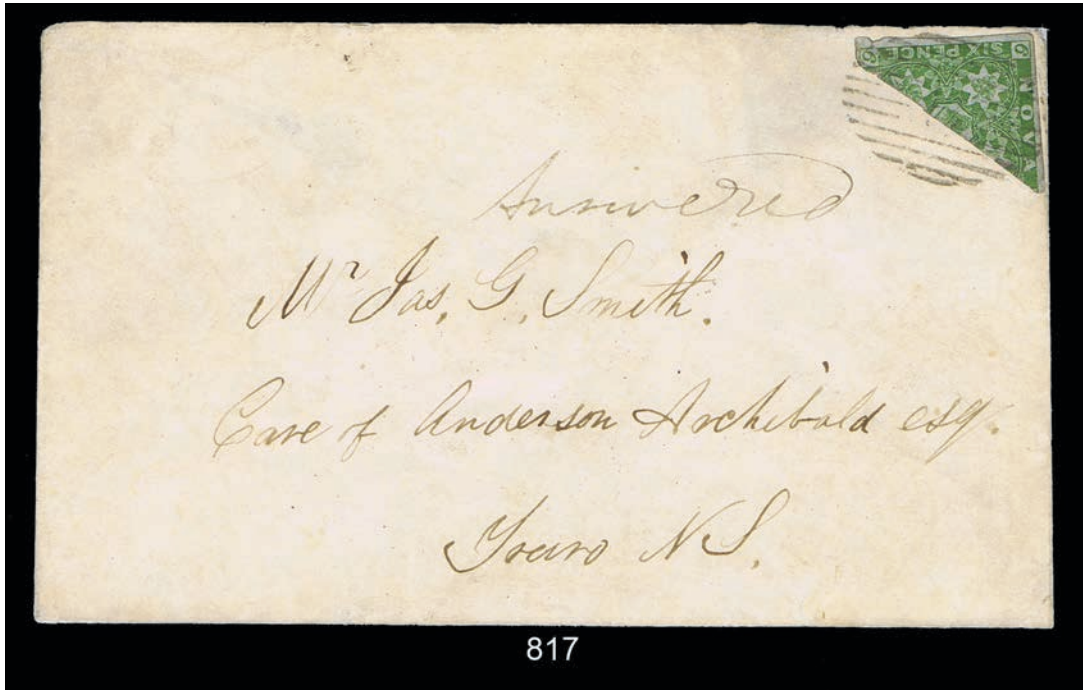 SIX PENCE
NOVA
Answered
Mr Jas, G, Smith.
Care of Anderson Archibald esq.
Truro N S.
817